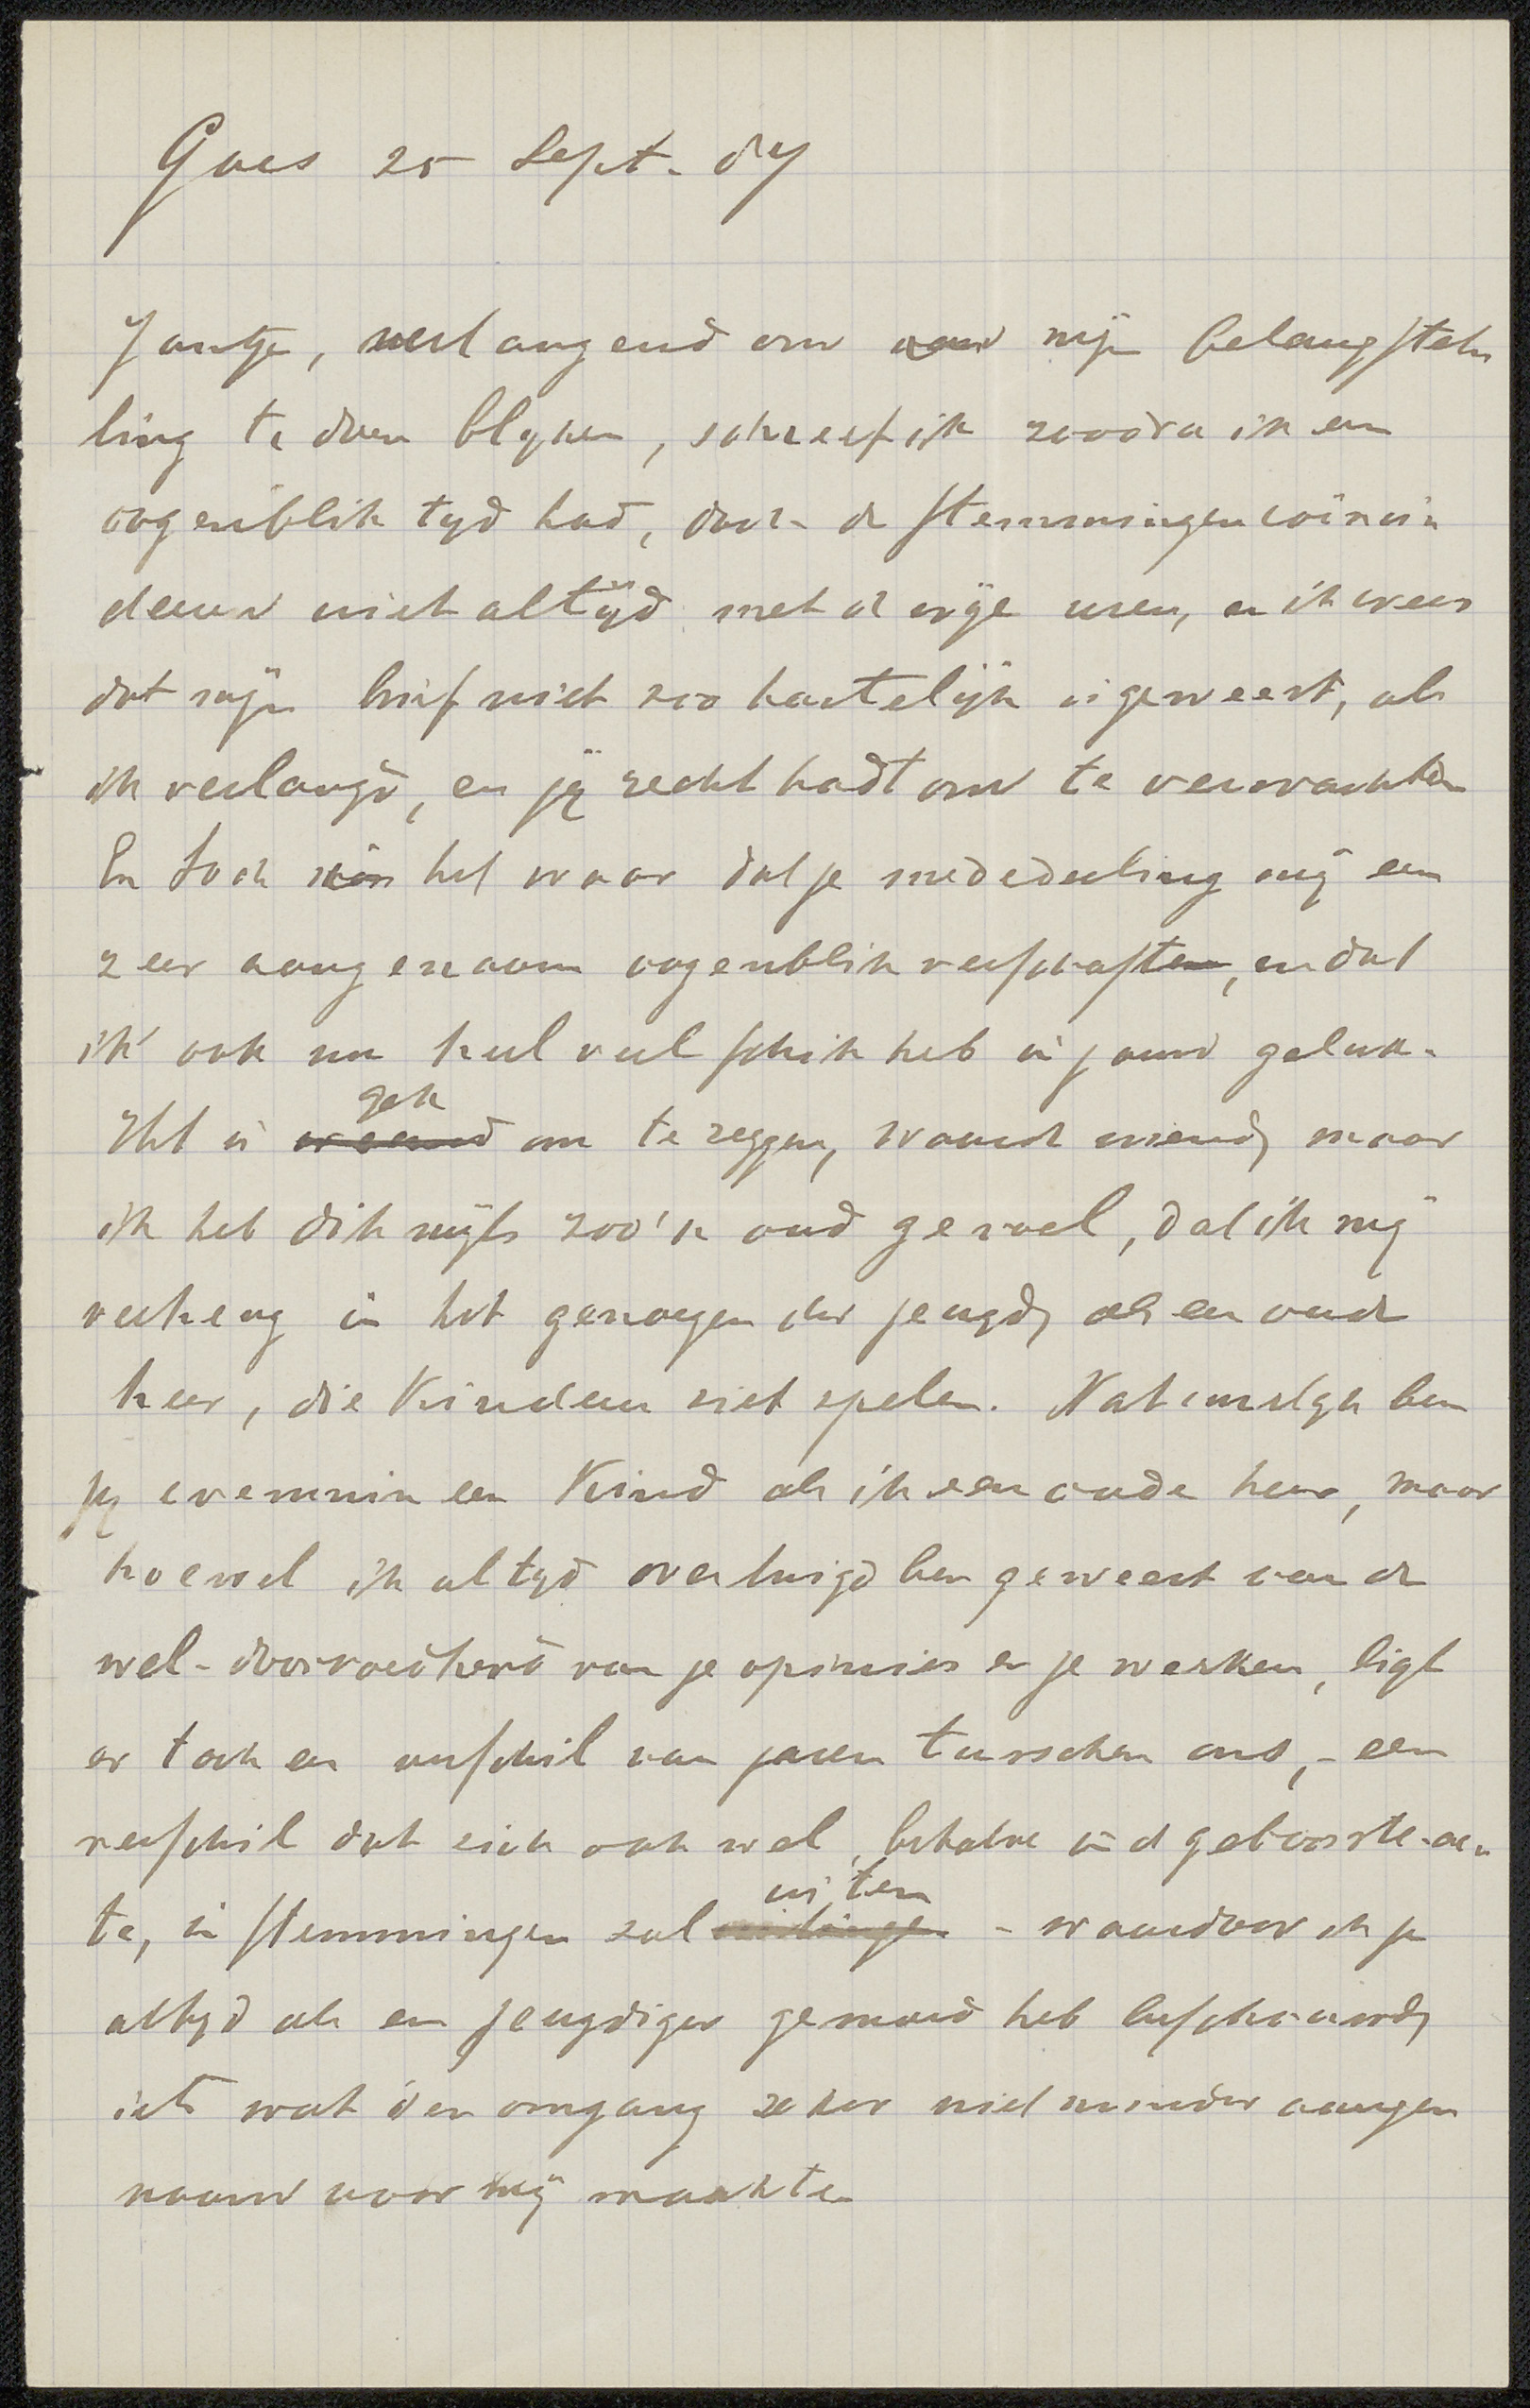 Goes 25 Sept. 07
Jantje, verlangend om mijn belangstel
ling te doen blyken, schreef ik zoodra ik een
oogenblik tyd had, doch de stemmingen coinci
deeren niet altijd met de vrije uren, en ik vrees
dat mijn brief niet zoo hartelijk is geweest, als
ik verlangd, en jij recht hadt om te verwachten
En toch is het waar dat je mededeeling mij een
zeer aangenaam oogenblik verschafte, en dat
ik ook nu heel veel schik heb in jouw geluk.
Het is vreemd gek om te zeggen, waarde vriend, maar
ik heb dikwijls zoo'n oud gevoel, dat ik mij
verheug in het genoegen der jeugd, als een oude
heer, die kinderen ziet spelen. Natuurlyk ben
jij evenmin een kind als ik een oude heer, maar
hoewel ik altyd overtuigd ben geweest van de
wel-doorvoedheid van je opinies en je werken, ligt
er toch een verschil van jaren tusschen ons, - een
verschil dat zich ook wel, behalve in de geboorte-ac
te, in stemmingen zal uiten - waardoor ik je
altyd als een jeugdiger gemoed heb beschouwd,
iets wat den omgang zeker niet minder aange
naam voor mij maakte